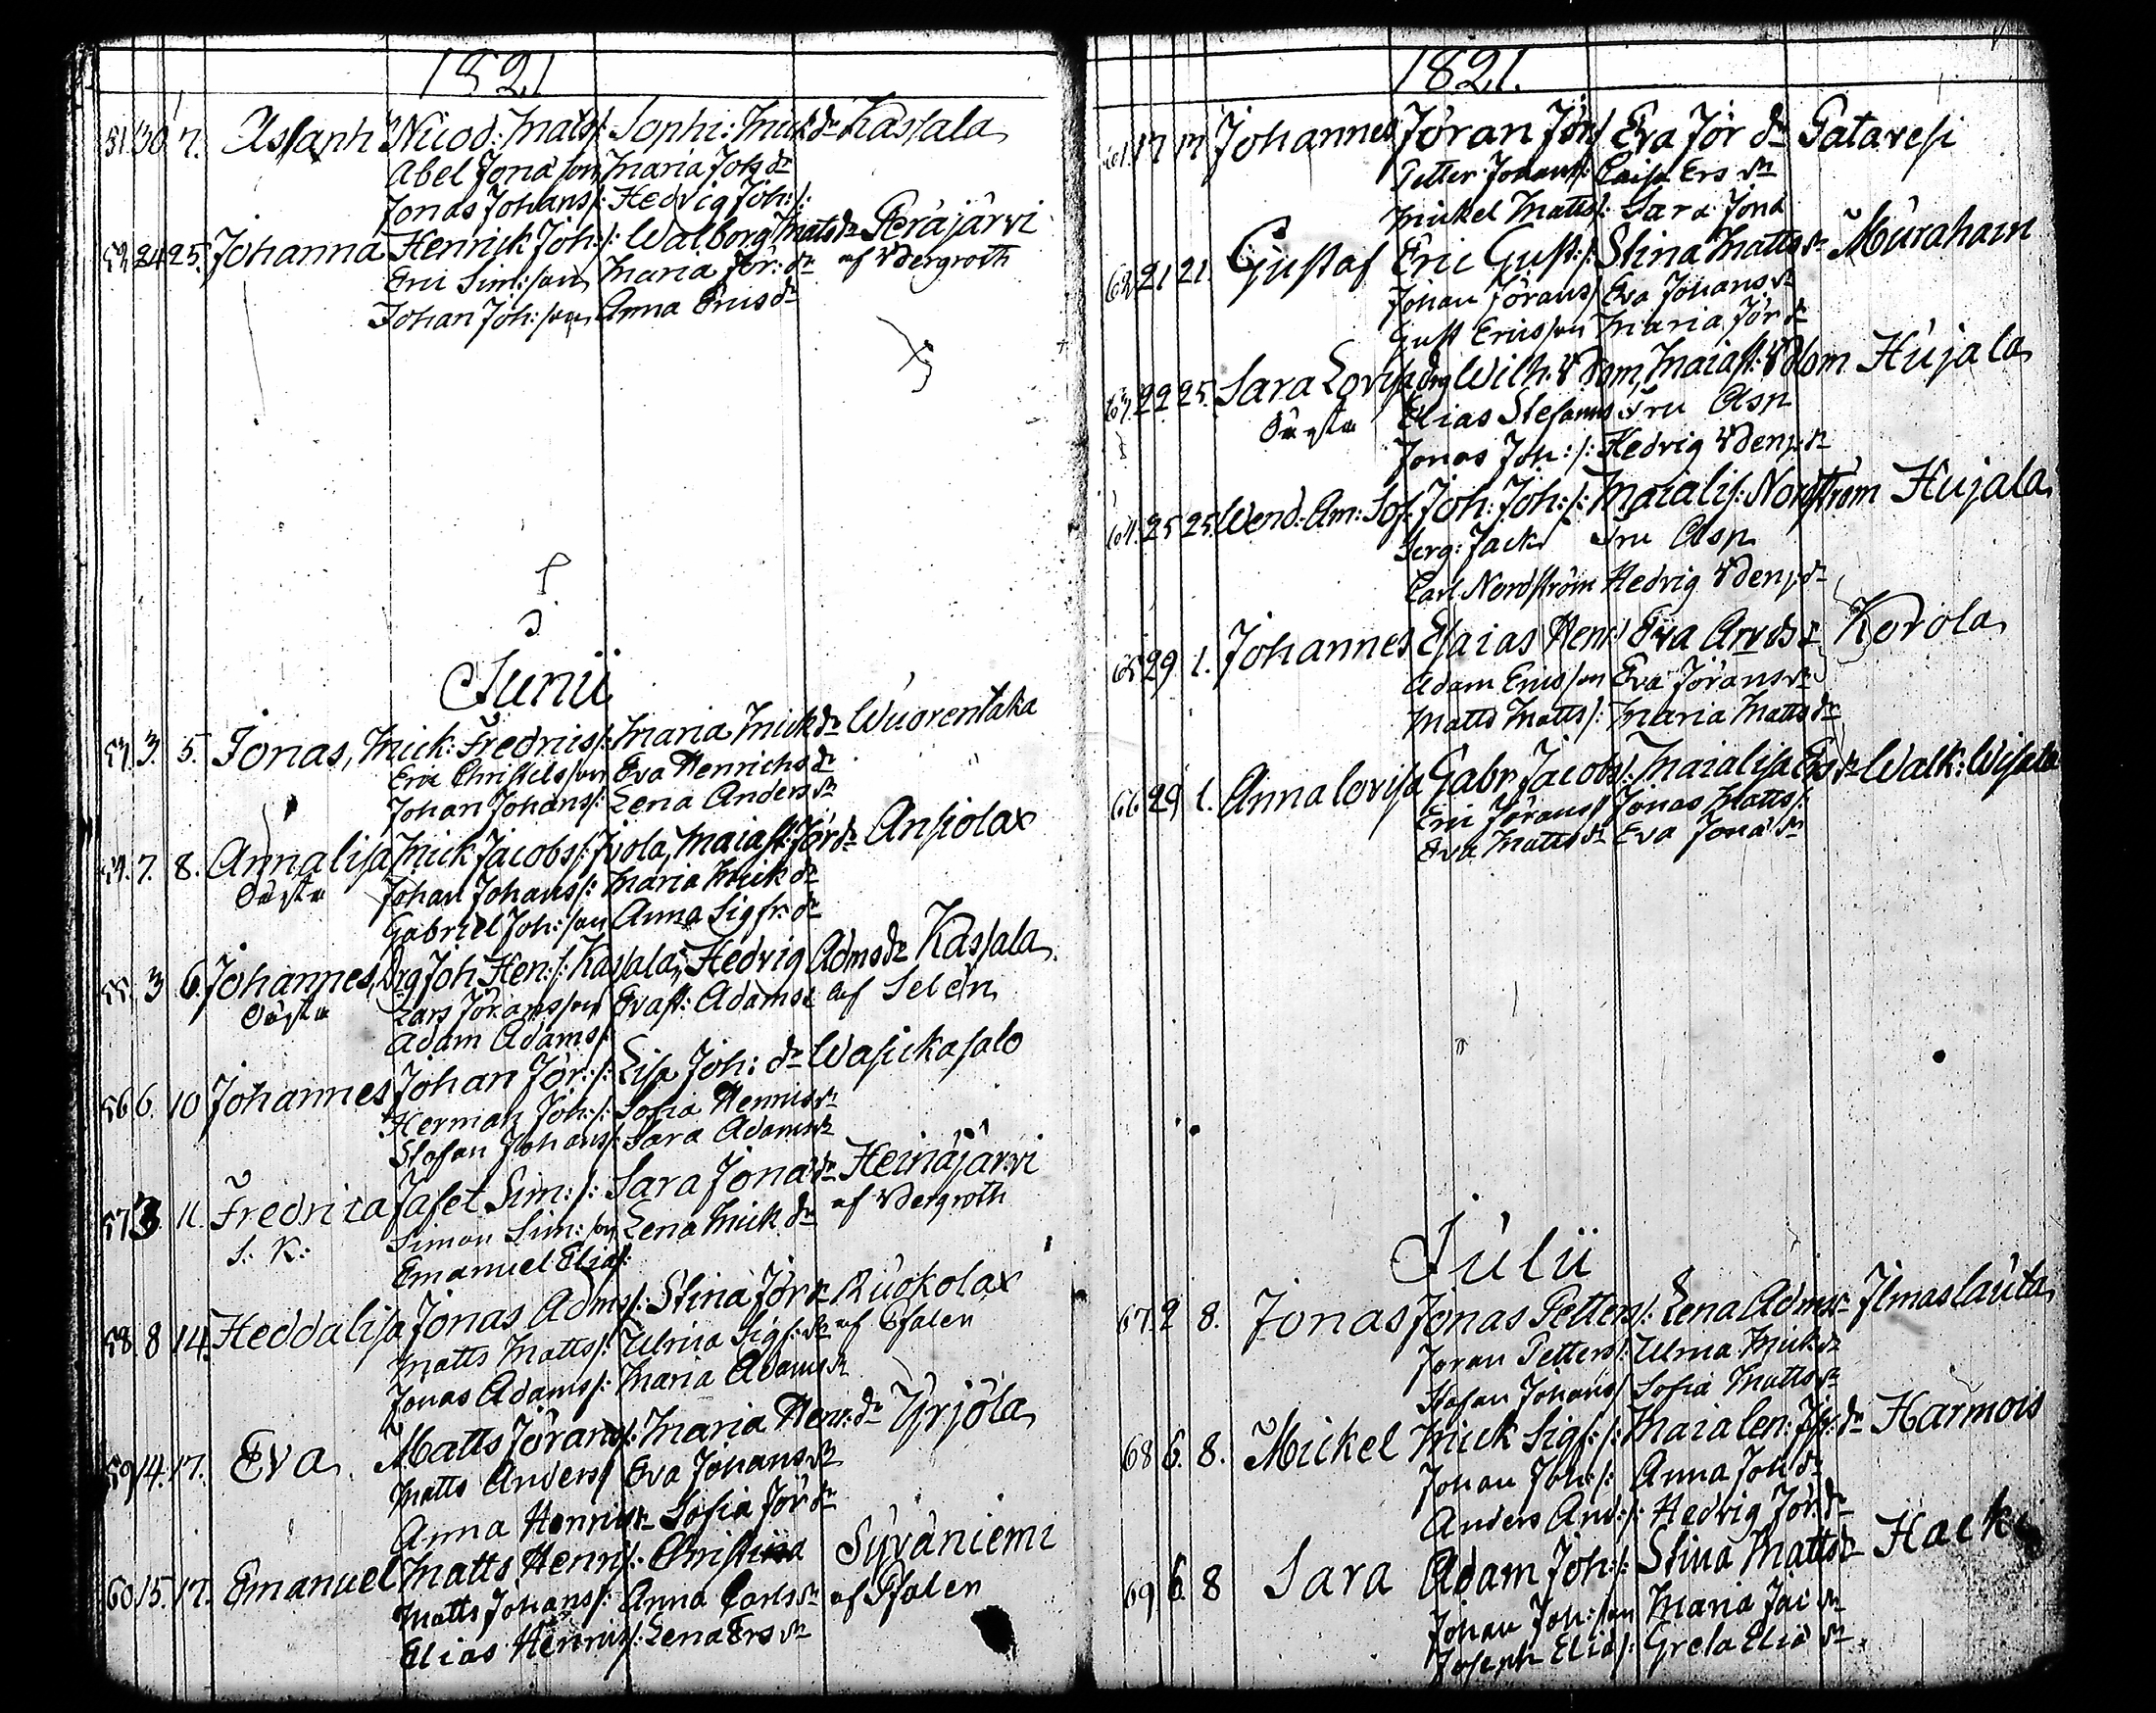 1821
51. 30 7. Assarth Nicod: Mats/: Sophi: Mick dr Kassala
Abel Jona son Maria Joh dr
Jonas Johans/: Hedvig Joh:/:
52 24 25. Johanna Henrick Joh:/: Walborg Mats dr Peräjärvi
Eric Sim:/on Maria Jör: dr af Wergroth
Johan Joh:/on Anna Erics dr
Junii
53. 3. 5. Jonas, Mick: Fredrics/: Maria Mick dr Wuorentaka
Eric Christers/on Eva Henrichs dr
Johan Johans/: Lena Anders dr
54. 7. 8. Annalisa Mick Jacobs/: Ivola, Maiast: Jör dr Ansiolax
Oägta Johan Johans/: Maria Mick dr
Gabriel Joh:/on Anna Sigfr: dr
55. 3 6. Johannes, Drg Joh Hen:/: Kassala, Hedvig Adms dr Kassala
Oägta Lars Jörans/on Evast: Adams af Selén
Adam Adams/:
56 6. 10 Johannes Johan Jör:/: Lisa Joh: dr Wasickasalo
Herman Joh:/: Sofia Henrics dr
Stefan Johans/: Sara Adams dr
57 3 11. Fredrica Jafet Sim:/: Sara Jona dr Heinäjärvi
S. K: Simon Sim:/on Lena Mick dr af Wergroth
Emanuel Elia/:
58. 8 14. Heddalisa Jonas Adms/: Stina Jör dr Ruokolax
Matts Matts/: Ulrica Sigf: dr af Pfalen
Jonas Adams/: Maria Adams dr
59 14. 17. Eva Matts Jörans/: Maria Henr: dr Yrjölä
Matts Anders/ Eva Johans dr
Anna Henrics dr Sofia Jör dr
60 15. 17. Emanuel Matts Henr/: Christina Syväniemi
Matts Johans/: Anna Carls dr af Pfalen
Elias Henrics/: Lena Ers dr
1821.
61. 17 17 Johannes Jöran Jör/ Eva Jör dr Patavesi
Petter Johans/: Caisa Ers dr
Mickel Matts/: Sara Jona
62 21 21. Gustaf Eric Gust:/: Stina Matts dr Muraham
Johan Jörans/ Eva Johans dr
Gust Erics/on Maria Jör dr
63. 22 25. Sara Lovisa drg Wilh. Wdom, Maiast: Wdom Hujala
Oägta Elias Stefans Fru Asp
Jonas Joh:/: Hedvig Wenj: dr
64. 25 25. Wend: Am: Sof. Joh: Joh:/: Maialis: Nordström Hujala
Serg: Jack Fru Asp
Carl Nordström Hedvig Wenj: dr
65 29 1. Johannes Esaias Henr/ Eva Arvds dr Kerola
Adam Erics/on Eva Jörans dr
Matts Matts/: Maria Matts dr
66. 29 1. Anna lovisa Gabr Jacobs/: Maialisa Ers dr Walk: Wisala
Eric Jörans/ Jonas Matts/:
Eva Matts dr Eva Jona dr
Julii
67. 2 8. Jonas Jonas Petters/: Lena Adms dr Ilmaslauta
Joran Petters/: Ulrica Mick dr
Stefan Johans/ Sofia Matts dr
68 6. 8. Mickel Mick Sigf:/: Maialen: dr Harmois
Johan Joh:/: Anna Joh dr
Anders And:/: Hedvig Jör: dr
69 6. 8 Sara Adam Joh:/: Stina Matts dr Hacks
Johan Joh:/on Maria Jac dr
Joseph Elia/: Greta Elia dr